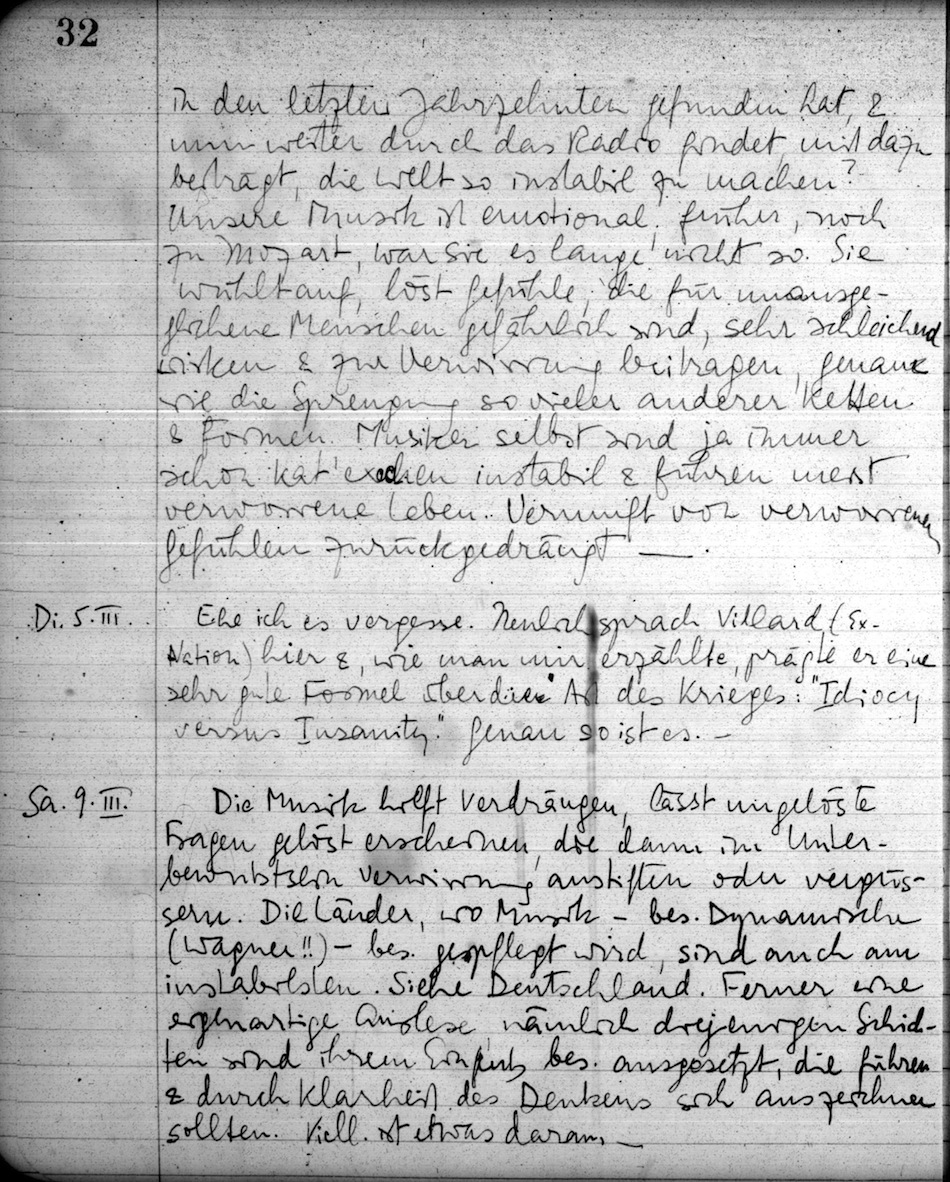 32
in den letzten Jahrzehnten gefunden hat, &
nun weiter durch das Radio findet, mit dazu
beiträgt, die Welt so instabil zu machen?
Unsere Musik ist emotional, früher, noch
zu Mozart, war sie es lange nicht so. Sie
wühlt auf, löst Gefühle, die für unausge-
glichene Menschen gefährlich sind, sehr schleichend
wirken & zur Verwirrung beitragen, genau
wie die Sprengung so vieler anderer Ketten
& Formen. Musiker selbst sind ja immer
schon kat'exochen instabil & führen meist
verworrene Leben. Vernunft von verworrenen
Gefühlen zurückgedrängt —.
Di. 5. III. Ehe ich es vergesse. Neulich sprach Villard (Ex-
Nation) hier &, wie man mir erzählte, prägte er eine
sehr gute Formel über diese Art des Krieges: "Idiocy
versus Insanity". Genau so ist es. –
Sa. 9. III. Die Musik hilft verdrängen, lässt ungelöste
Fragen gelöst erscheinen, die dann im Unter-
bewusstsein Verwirrung anstiften oder vergrös-
sern. Die Länder, wo Musik – bes. Dynamische
(Wagner!!) – bes. gepflegt wird, sind auch am
instabilsten. Siehe Deutschland. Ferner eine
eigenartige Auslese, nämlich diejenigen Schich-
ten sind ihrem Einfluss bes. ausgesetzt, die führen
& durch Klarheit des Denkens sich auszeichnen
sollten. Viell. ist etwas daran. –